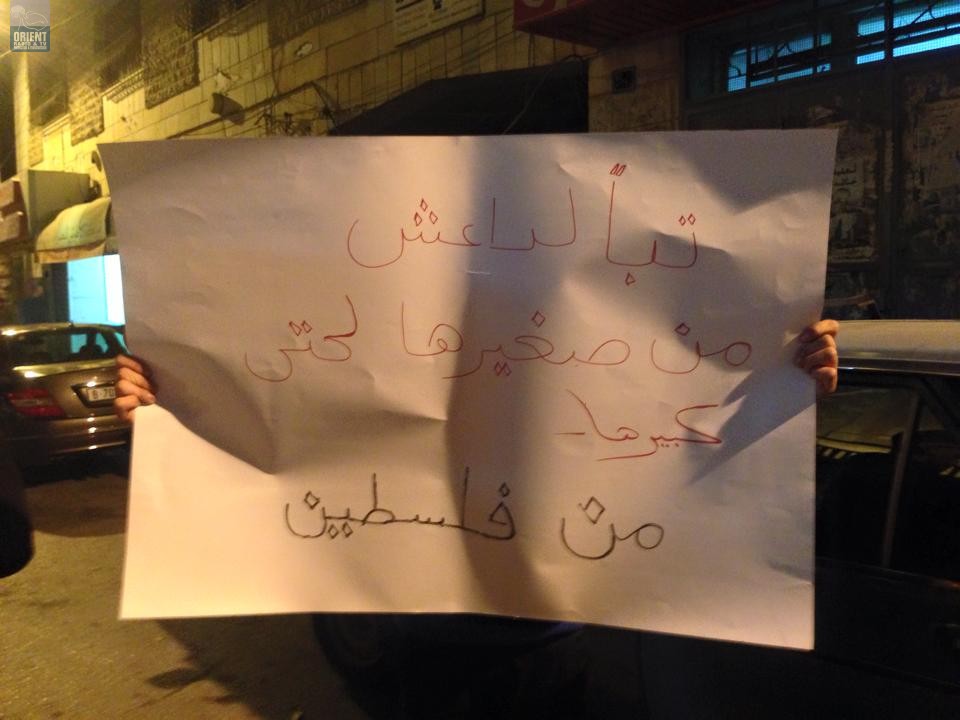 ORIENT
RADIO & TV
تباً لداعش
من صغيرها لحتى
كبيرها
من فلسطين